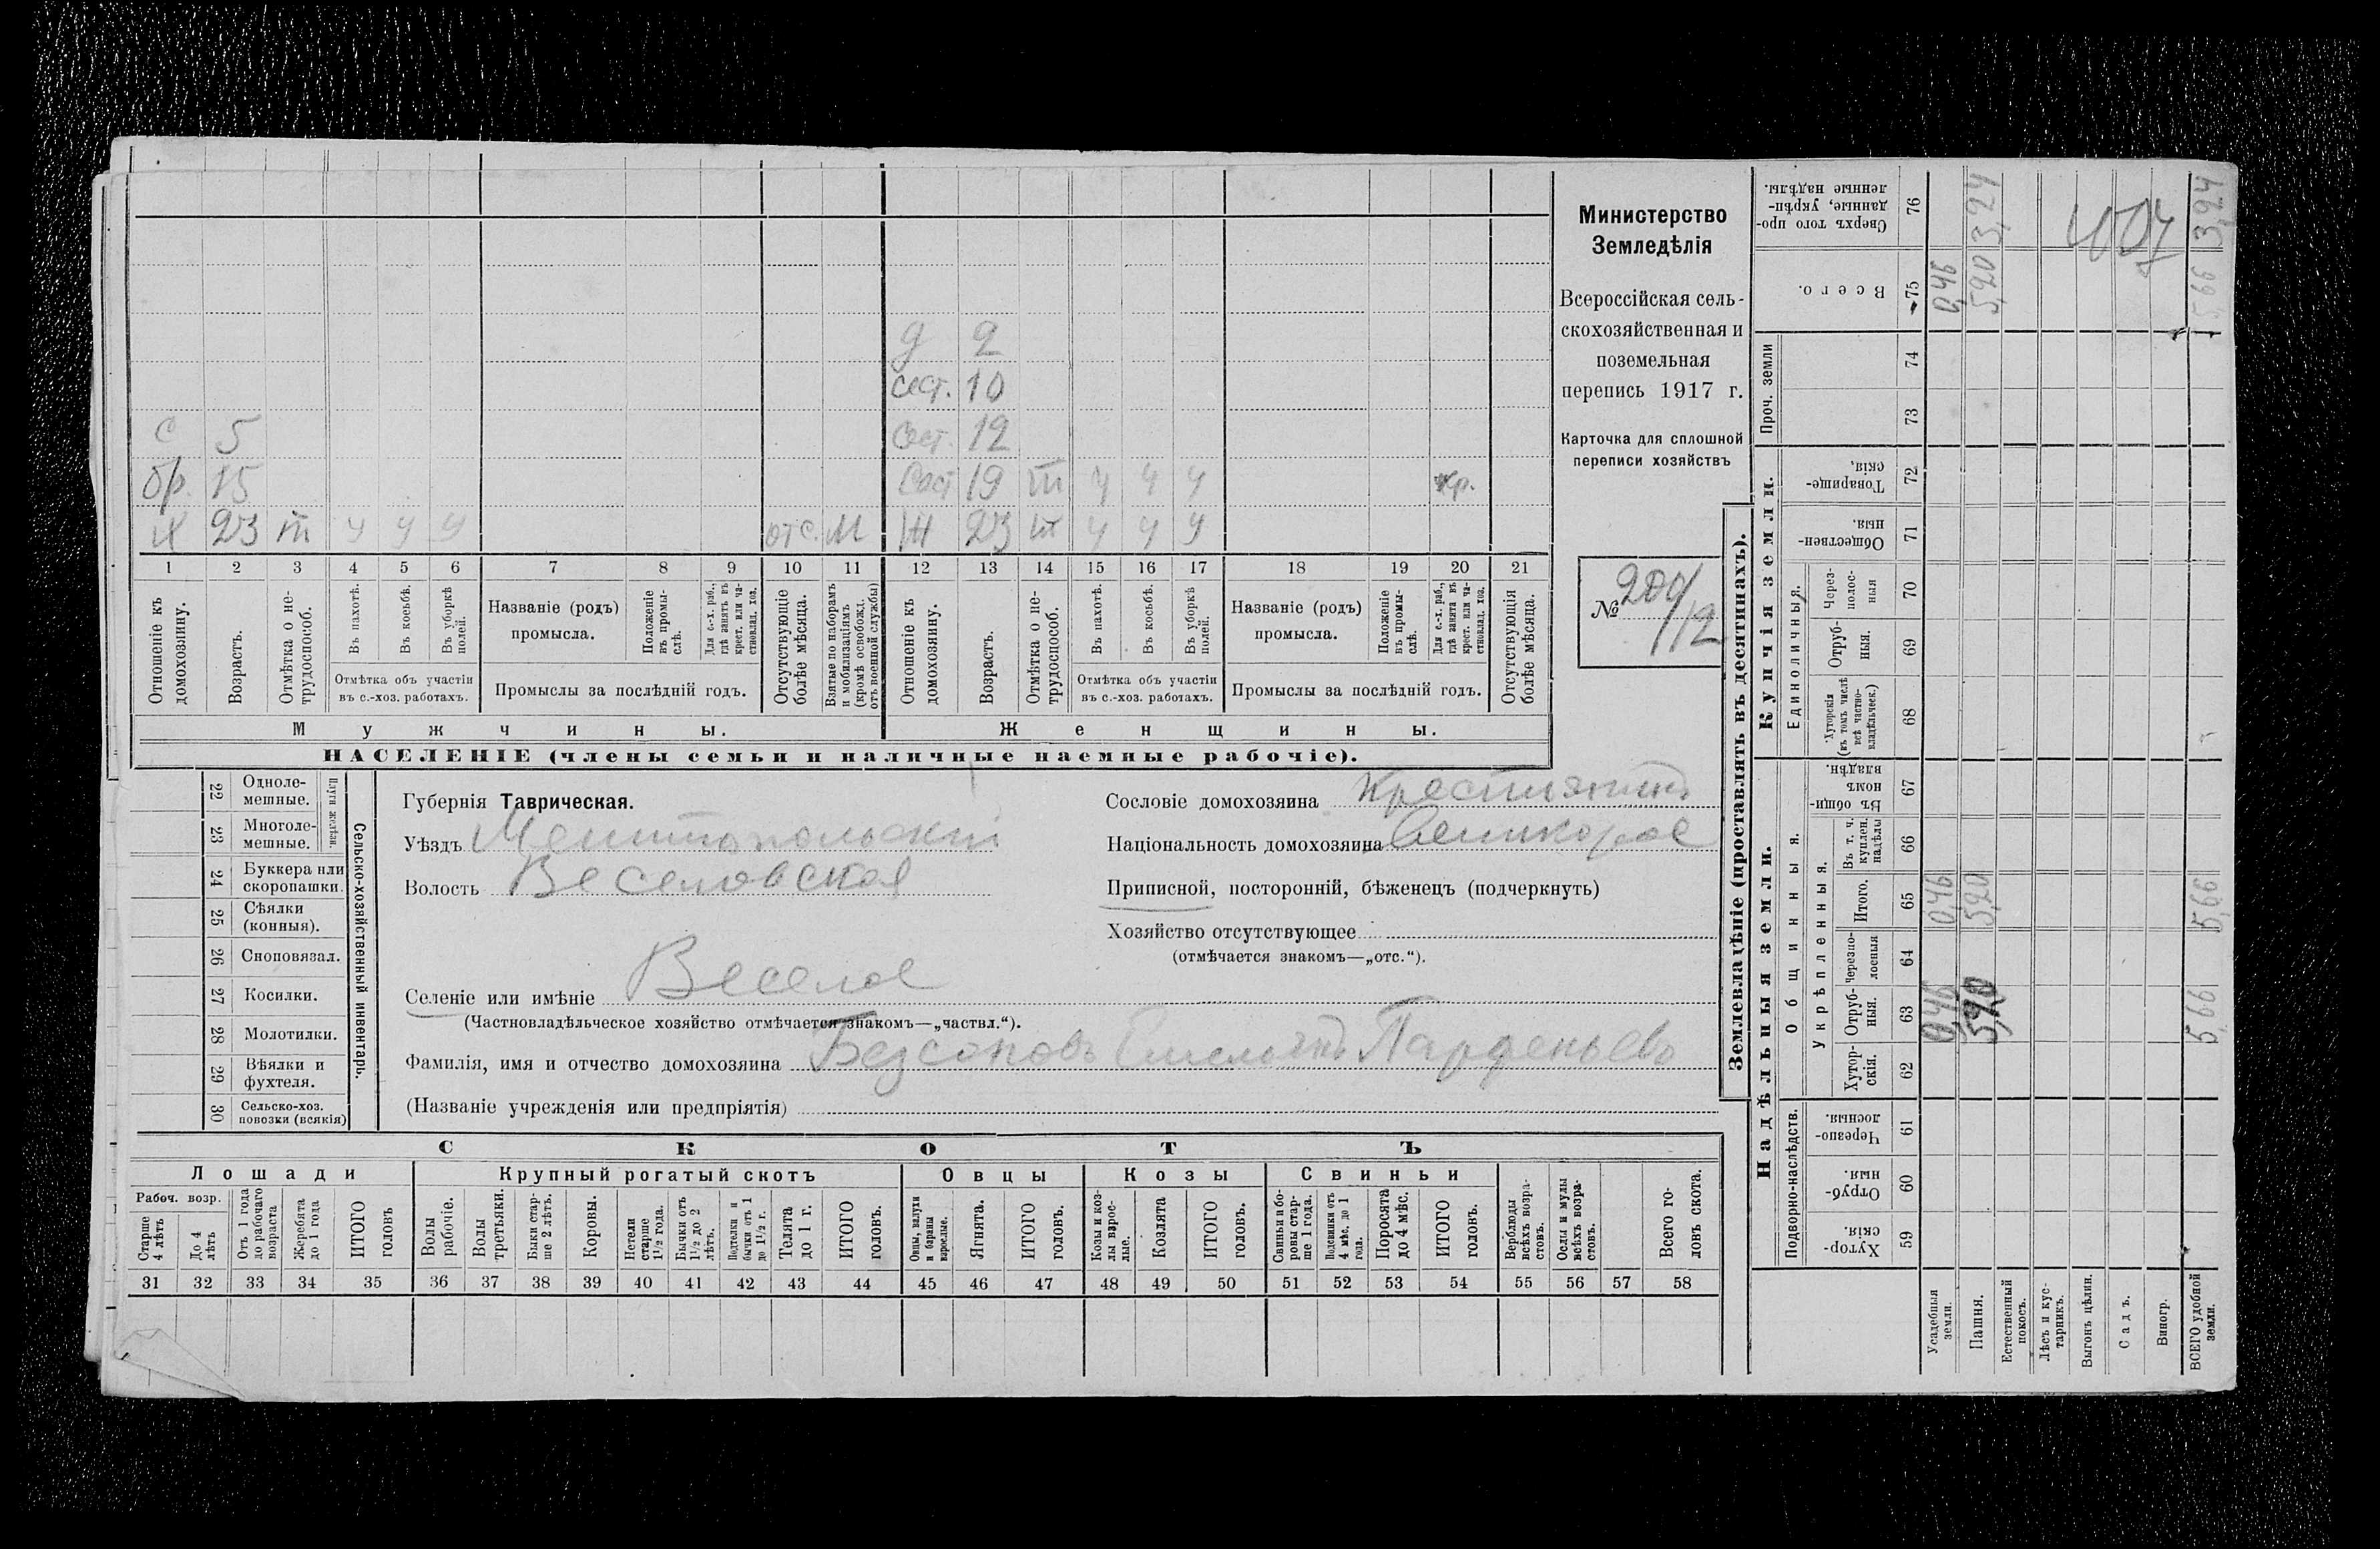 Министерство
Земледѣлія
Всероссійская сель-
скохозяйственная и
поземельная
перепись 1917 г.
Карточка для сплошной
переписи хозяйствъ
№ 200/12
д 2
сест. 10
с 5 сест. 12
бр. 15 сест 19 ш ч ч ч кр.
х 23 ш ч ч ч отс. м ж 23 ш ч ч ч
1 2 3 4 5 6 7 8 9 10 11 12 13 14 15 16 17 18 19 20 21
Отношеніе къ домохозяину.
Возрастъ.
Отмѣтка о не-трудоспособ.
Въ пахотѣ.
Въ косьбѣ.
Въ уборкѣ полей.
Отмѣтка объ участіи
въ с.-хоз. работахъ.
Названіе (родъ)
промысла.
Положеніе въ промы-слѣ.
Для с.-х. раб., гдѣ занятъ въ крест. или ча-стновлад. хоз.
Промыслы за послѣдній годъ.
Отсутствующіе болѣе мѣсяца.
Взятые по наборамъ и мобилизаціямъ (кромѣ освобожд. отъ военной службы)
Отношеніе къ домохозяину.
Возрастъ.
Отмѣтка о не-трудоспособ.
Въ пахотѣ.
Въ косьбѣ.
Въ уборкѣ полей.
Отмѣтка объ участіи
въ с.-хоз. работахъ.
Названіе (родъ)
промысла.
Положеніе въ промы-слѣ.
Для с.-х. раб., гдѣ занята въ крест. или ча-стновлад. хоз.
Промыслы за послѣдній годъ.
Отсутствующія болѣе мѣсяца.
Мужчины. Женщины.
НАСЕЛЕНІЕ (члены семьи и наличные наемные рабочіе).
Сельско-хозяйственный инвентарь.
Плуги желѣзн.
22 Одноле-мешные.
23 Многоле-мешные.
24 Буккера или скоропашки.
25 Сѣялки (конныя).
26 Сноповязал.
27 Косилки.
28 Молотилки.
29 Вѣялки и фухтеля.
30 Сельско-хоз. повозки (всякія)
Губернія Таврическая.
Уѣздъ Мелитопольскій
Волость Веселовская
Селеніе или имѣніе Веселое
(Частновладѣльческое хозяйство отмѣчается знакомъ—„частвл.“).
Сословіе домохозяина Крестьянинъ
Національность домохозяина Великорос
Приписной, посторонній, бѣженецъ (подчеркнуть)
Хозяйство отсутствующее
(отмѣчается знакомъ—„отс.“).
Фамилія, имя и отчество домохозяина Безсоновъ Парфеньевъ
(Названіе учрежденія или предпріятія)
СКОТЪ
Лошади Крупный рогатый скотъ Овцы Козы Свиньи
Рабоч. возр.
Старше 4 лѣтъ
До 4 лѣтъ
Отъ 1 года до рабочаго возраста
Жеребята до 1 года
ИТОГО головъ
Волы рабочіе.
Волы третьяки.
Быки стар-ше 2 лѣтъ.
Коровы.
Нетели старше 1½ года.
Бычки отъ 1½ до 2 лѣтъ.
Подтелки и бычки отъ 1 до 1½ г.
Телята до 1 г.
ИТОГО головъ.
Овцы, валухи и бараны взрослые.
Ягнята.
ИТОГО головъ.
Козы и коз-лы взрос-лые.
Козлята
ИТОГО головъ.
Свиньи и бо-ровы стар-ше 1 года.
Подсвинки отъ 4 мѣс. до 1 года.
Поросята до 4 мѣс.
ИТОГО головъ.
Верблюды всѣхъ возра-стовъ.
Ослы и мулы всѣхъ возра-стовъ.
Всего го-ловъ скота.
31 32 33 34 35 36 37 38 39 40 41 42 43 44 45 46 47 48 49 50 51 52 53 54 55 56 57 58
Землевладѣніе (проставлять въ десятинахъ).
Надѣльныя земли. Купчія земли.
Подворно-наслѣдств.
Общинныя.
Укрѣпленныя.
Единоличныя.
Проч. земли
Хутор-скія. 59
Отруб-ныя. 60
Черезпо-лосныя. 61
Хутор-скія. 62
Отруб-ныя. 63
Черезпо-лосныя 64
Итого. 65
Въ т. ч. куплен. надѣлы 66
Въ общин-номъ владѣн. 67
Хуторскія (въ томъ числѣ всѣ частно-владѣльческ.) 68
Отруб-ныя. 69
Через-полос-ныя 70
Обществен-ныя. 71
Товарище-скія. 72
73
74
Всего. 75
Сверхъ того про-данные, укрѣп-ленные надѣлы. 76
Усадебныя земли. 0,46 0,46 0,46
Пашня. 5,20 5,20 5,20 3,24
Естественный покосъ.
Лѣсъ и кус-тарникъ.
Выгонъ цѣлин.
Садъ.
Виногр.
ВСЕГО удобной земли. 5,66 5,66 5,66 3,24